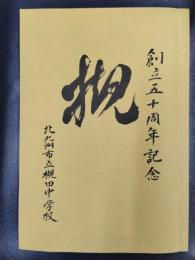 創立五十周年記念
槻
北九州市立槻田中学校